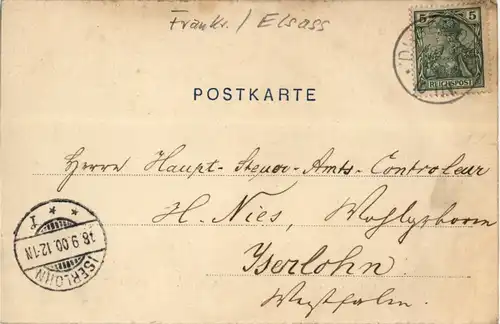 Frankr. / Elsass
5 5
REICHSPOST
POSTKARTE
Herrn Haupt-Steuer-Amts-Controleur
H. Nies, Wohlgeborn
Iserlohn
Westfalen.
* * I
18.9.00.12-1N
ISERLOHN